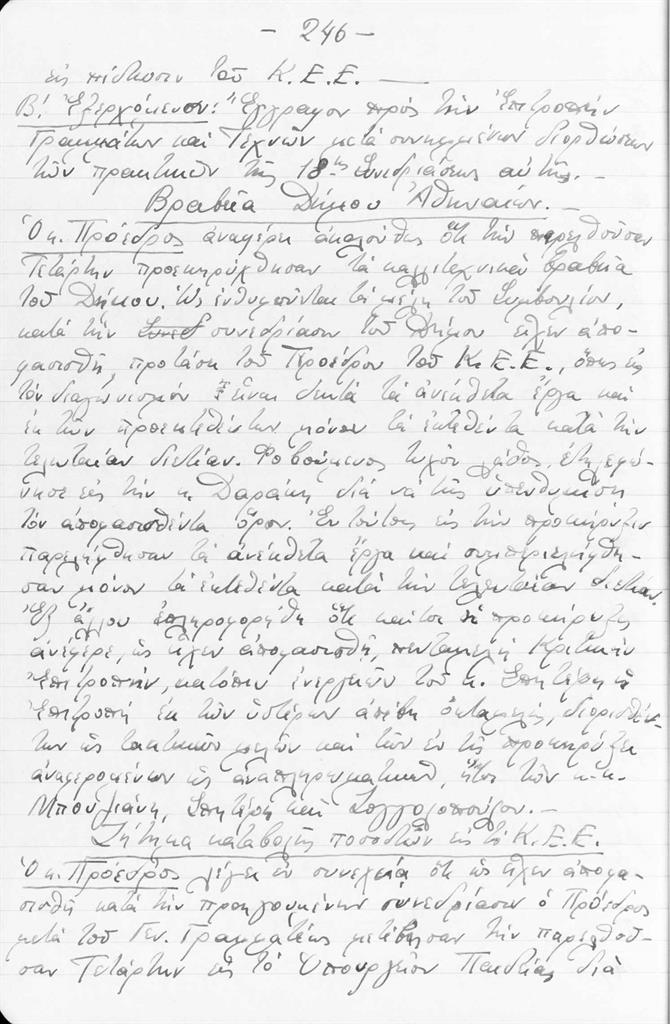 - 246 -
εἰς πίστωσιν τοῦ Κ.Ε.Ε. —
Β! Ἐξερχόμενον: Ἔγγραφον πρὸς τὴν Ἐπιτροπὴν
Γραμμάτων καὶ Τεχνῶν μετὰ συνημμένων διορθώσεων
τῶν πρακτικῶν τῆς 18ης Συνεδριάσεως αὐτῆς. -
Βραβεῖα Δήμου Ἀθηναίων. -
Ὁ κ. Πρόεδρος ἀναφέρει ἀκολούθως ὅτι τὴν παρελθοῦσαν
Τετάρτην προεκηρύχθησαν τὰ καλλιτεχνικὰ βραβεῖα
τοῦ Δήμου. Ὡς ἐνθυμοῦνται τὰ μέλη τοῦ Συμβουλίου,
κατὰ τὴν συνεδρίασιν τοῦ Δήμου εἶχεν ἀπο-
φασισθῆ, προτάσει τοῦ Προέδρου τοῦ Κ.Ε.Ε., ὅπως εἰς
τὸν διαγωνισμὸν εἶναι δεκτὰ τὰ ἀνέκθετα ἔργα καὶ
ἐκ τῶν προεκτεθέντων μόνον τὰ ἐκτεθέντα κατὰ τὴν
τελευταίαν διετίαν. Φοβούμενος τυχὸν λάθος, ἐτηλεφώ-
νησε εἰς τὴν κ. Δαράκη διὰ νὰ τῆς ὑπενθυμίση
τὸν ἀποφασισθέντα ὅρον. Ἐν τούτοις εἰς τὴν προκήρυξιν
παρελήφθησαν τὰ ἀνέκθετα ἔργα καὶ συμπεριελήφθη-
σαν μόνον τὰ ἐκτεθέντα κατὰ τὴν τελευταίαν διετίαν.
Ἐξ ἄλλου ἐπληροφορήθη ὅτι καίτοι ἡ προκήρυξις
ἀνέφερε, ὡς εἶχεν ἀποφασισθῆ, πενταμελῆ Κριτικὴν
Ἐπιτροπήν, κατόπιν ἐνεργειῶν τοῦ κ. Σπητέρη ἡ
Ἐπιτροπὴ ἐκ τῶν ὑστέρων ἀπέβη ὀκταμελής, διορισθέν-
των ὡς τακτικῶν μελῶν καὶ τῶν ἐν τῇ προκηρύξει
ἀναφερομένων ὡς ἀναπληρωματικῶν, ἤτοι τῶν κ.κ.
Σπητέρη καὶ Λογγολοπούλου. -
Ζήτημα καταβολῆς ποσοστῶν εἰς τὸ Κ.Ε.Ε.
Ὁ κ. Πρόεδρος λέγει ἐν συνεχείᾳ ὅτι ὡς εἶχεν ἀποφα-
σισθῆ κατὰ τὴν προηγουμένην συνεδρίασιν ὁ Πρόεδρος
μετὰ τοῦ Γεν. Γραμματέως μετέβησαν τὴν παρελθοῦ-
σαν Τετάρτην εἰς τὸ Ὑπουργεῖον Παιδείας διὰ